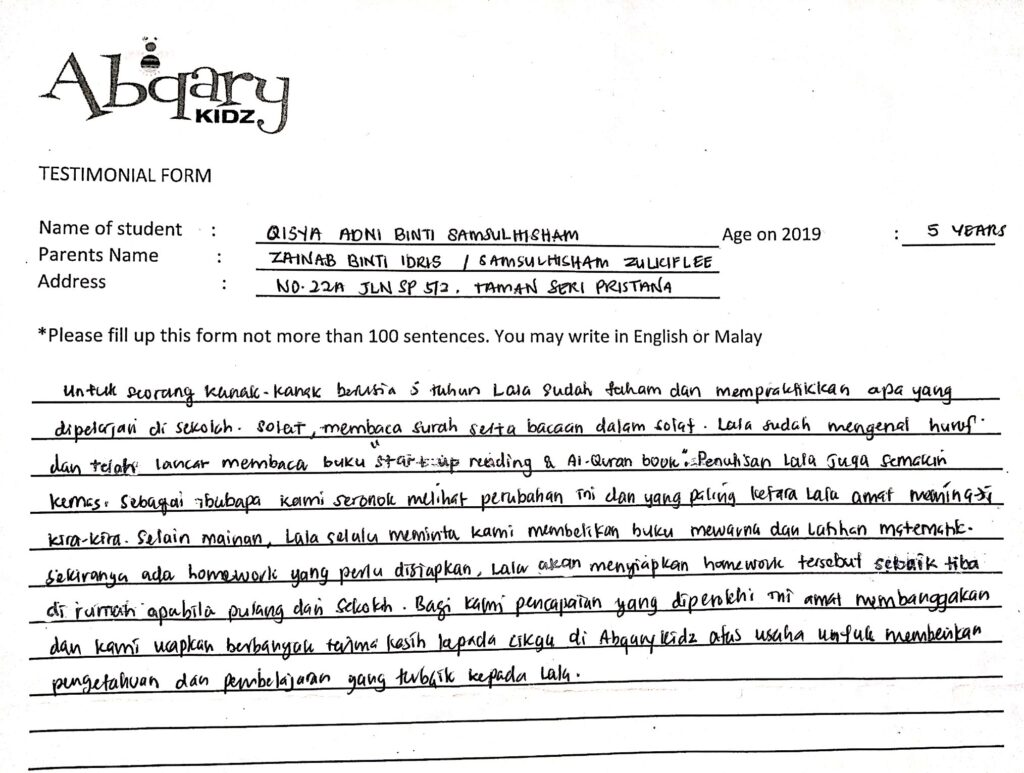 Abqary
KIDZ
TESTIMONIAL FORM
Name of student : QISYA ADNI BINTI SAMSULHISHAM Age on 2019 : 5 YEARS
Parents Name : ZAINAB BINTI IDRIS / SAMSULHISHAM ZULKIFLEE
Address : NO. 22A JLN SP 5/2. TAMAN SERI PRISTANA
*Please fill up this form not more than 100 sentences. You may write in English or Malay
Untuk seorang kanak-kanak berusia 5 tahun Lala sudah faham dan mempraktikkan apa yang
dipelajari di sekolah. Solat, membaca surah serta bacaan dalam solat. Lala sudah mengenal huruf.
dan telah lancar membaca buku "start up reading & Al-Quran book". Penulisan Lala juga semakin
kemas. Sebagai ibubapa kami seronok melihat perubahan ini dan yang paling ketara Lala amat meminati
kira-kira. Selain mainan, Lala selalu meminta kami membelikan buku mewarna dan latihan matematik.
Sekiranya ada homework yang perlu disiapkan, Lala akan menyiapkan homework tersebut sebaik tiba
di rumah apabila pulang dari sekolah. Bagi kami pencapaian yang diperolehi ini amat membanggakan
dan kami ucapkan berbanyak terima kasih kepada cikgu di Abqary Kidz atas usaha untuk memberikan
pengetahuan dan pembelajaran yang terbaik kepada Lala.